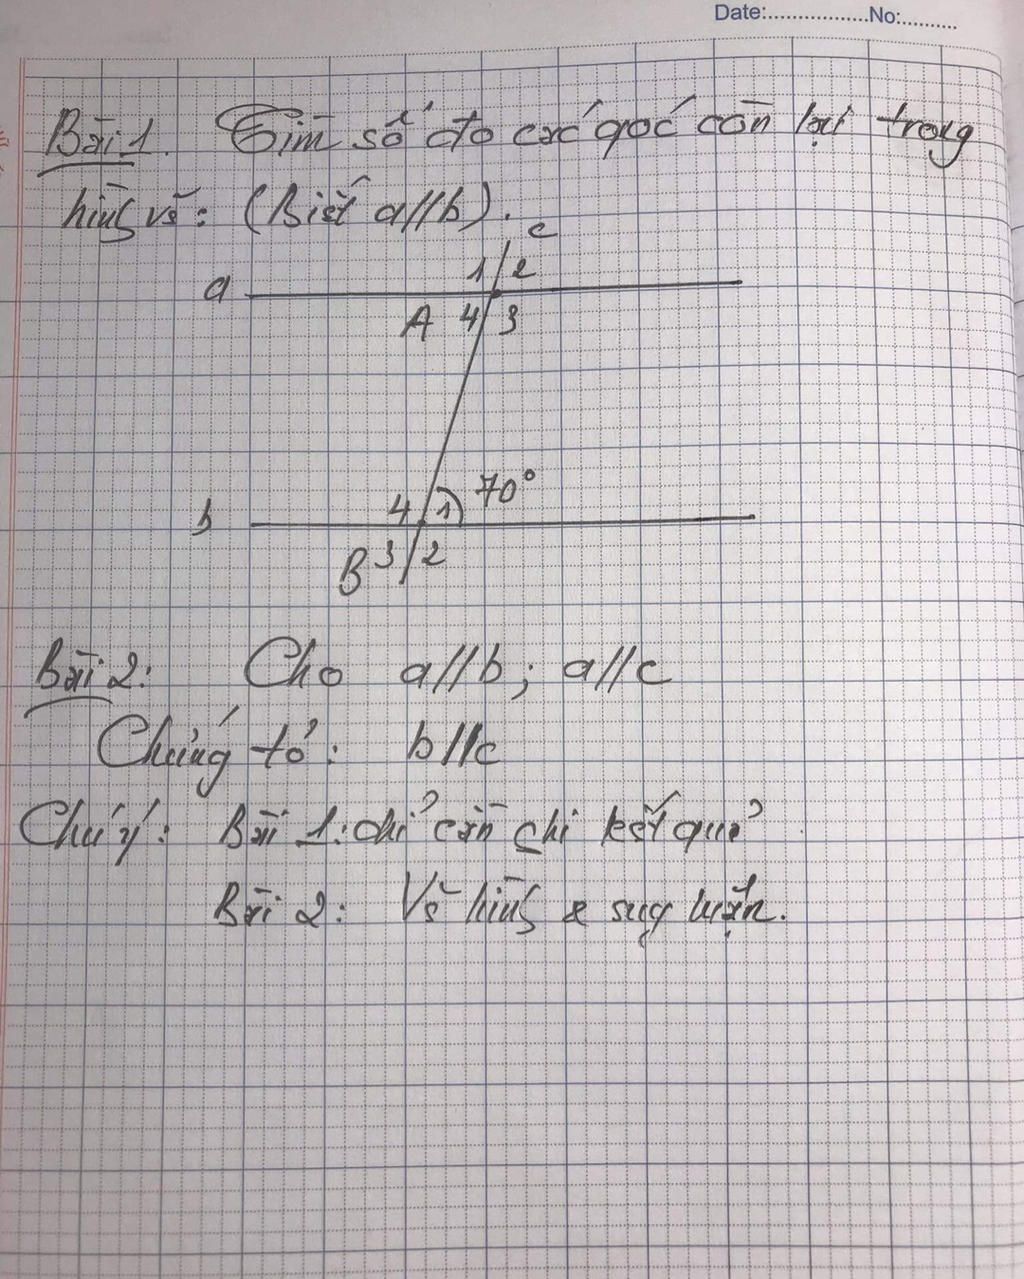 Date:.................No:..........
Bài 1. Tìm số đo các góc còn lại trong
hình vẽ: (Biết a//b).
c
a
1 2
A 4 3
70°
b
4 1
B 3 2
Bài 2: Cho a//b; a//c
Chứng tỏ: b//c
Chú ý: Bài 1: chỉ cần ghi kết quả
Bài 2: Vẽ hình & suy luận.